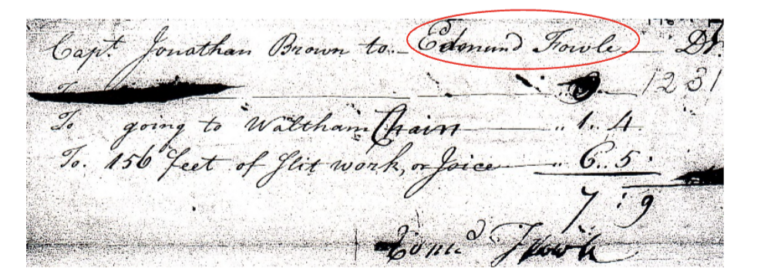 Capt. Jonathan Brown to Edmund Fowle Dr.
1231
To going to Waltham Chain " 1 " 4
To. 156 feet of slit work, or Joice " 6 " 5
7 : 9
Edmd Fowle